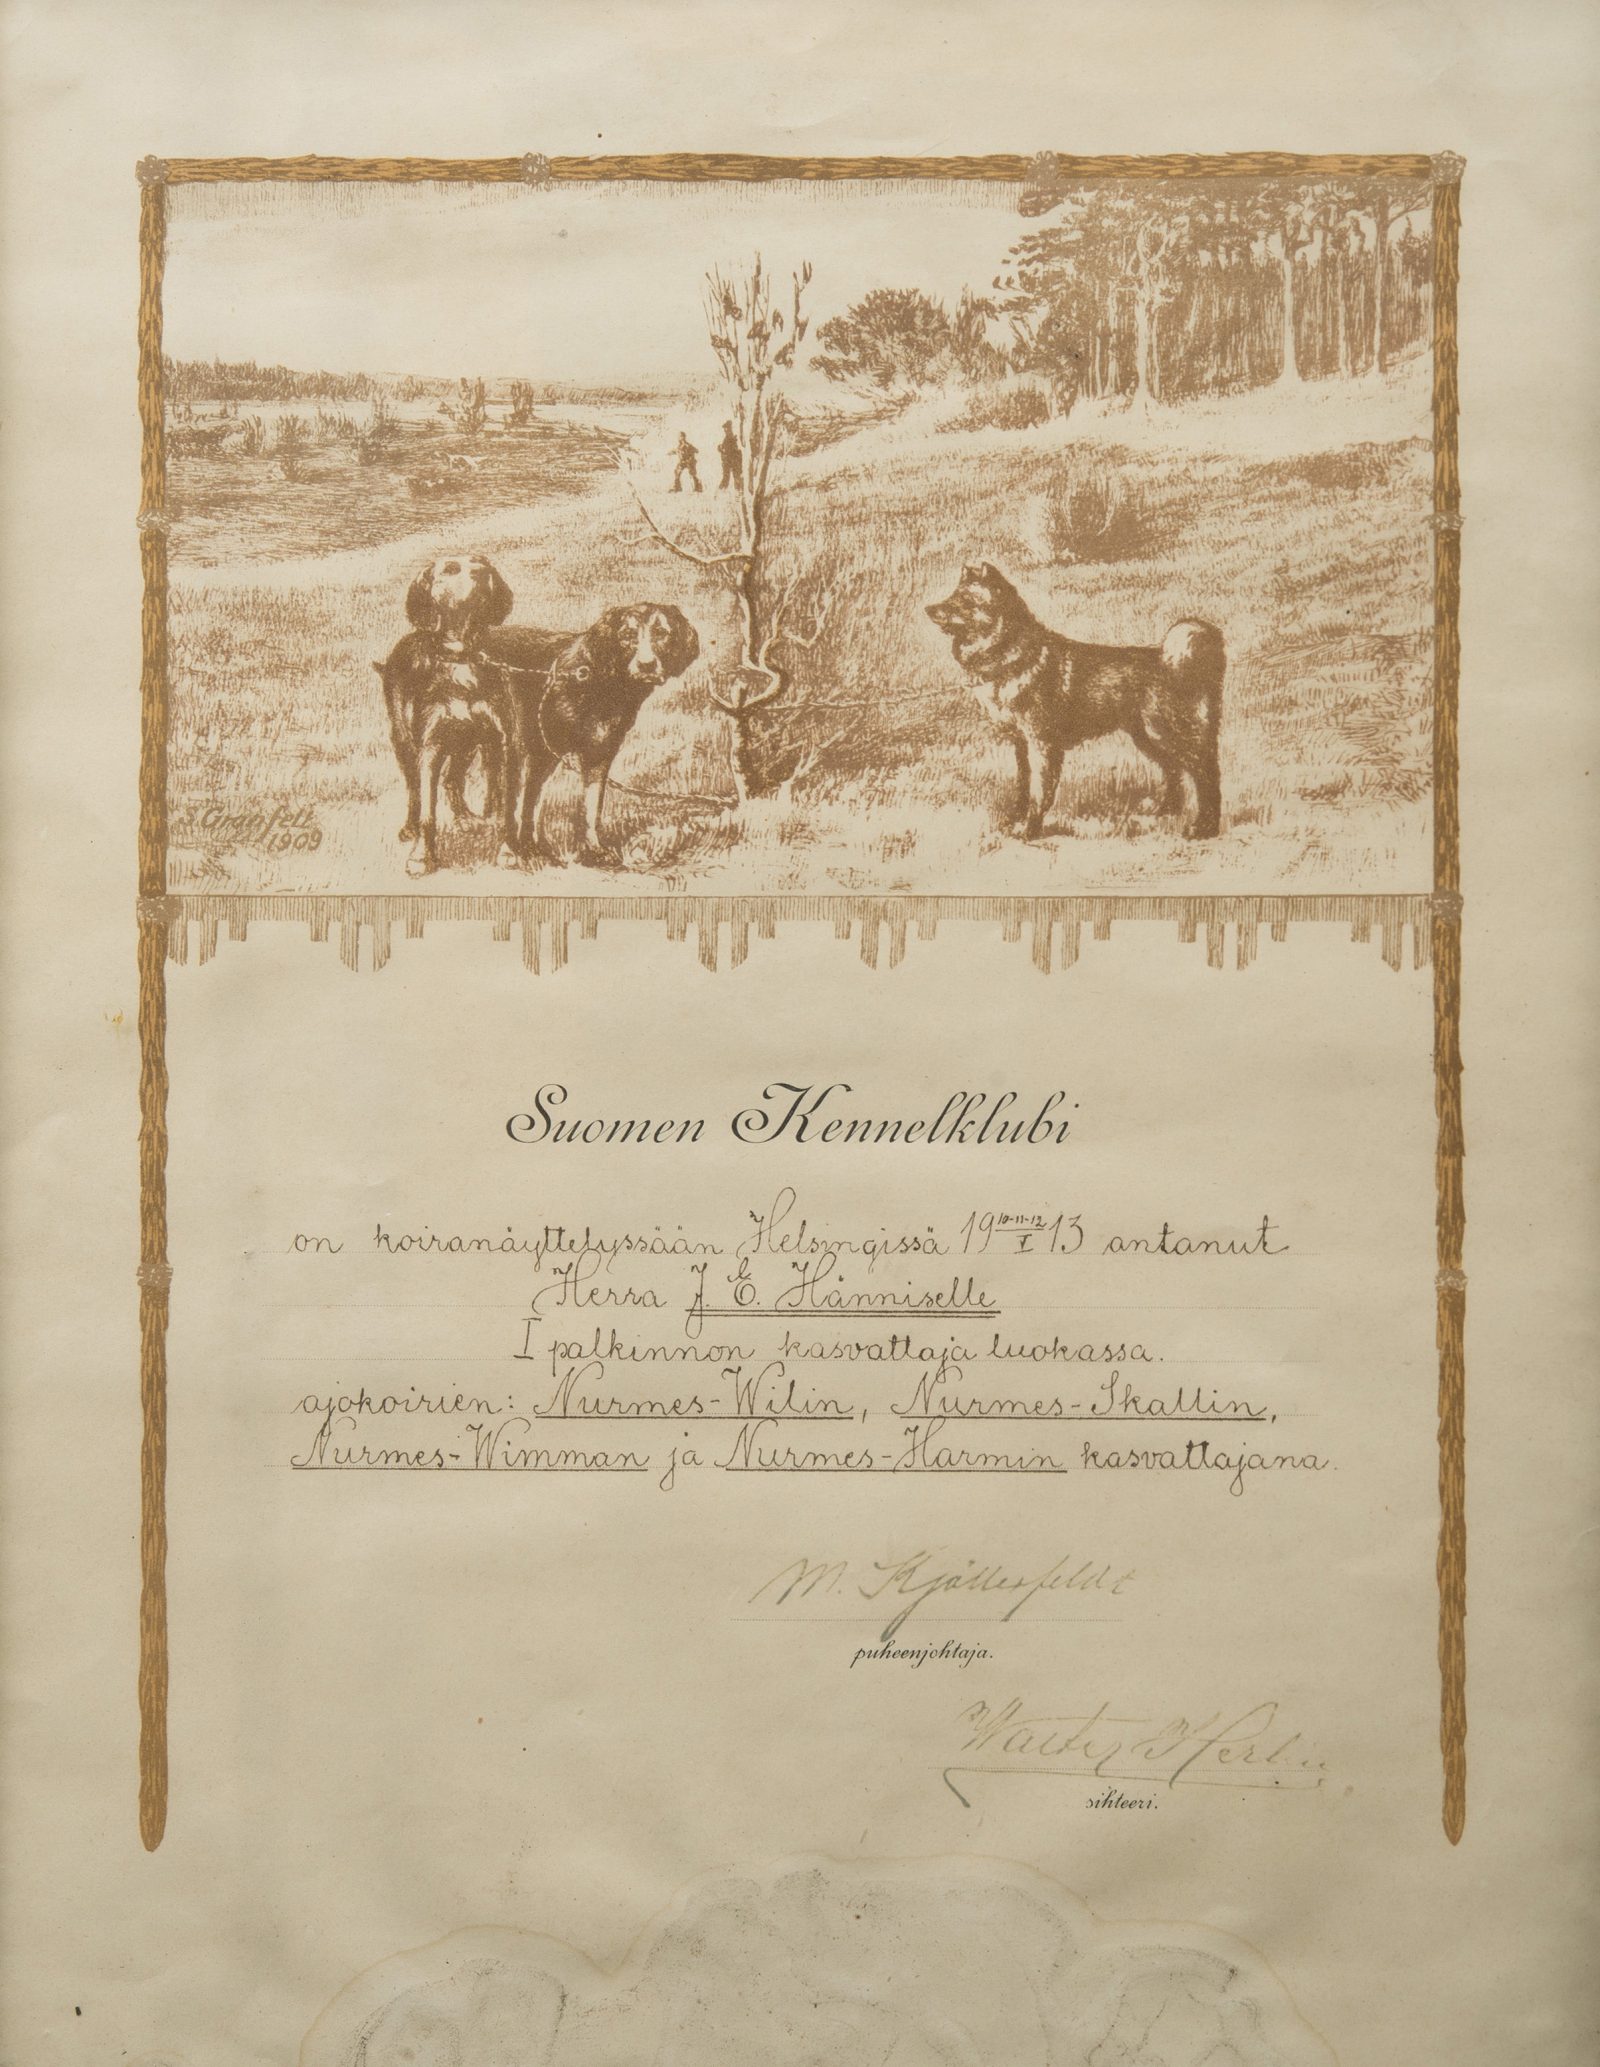 S. Granfelt
1909
Suomen Kennelklubi
on koiranäyttelyssään Helsingissä 19 10-11-12/I 13 antanut
Herra J. E. Hänniselle
I palkinnon kasvattaja luokassa.
ajokoirien: Nurmes-Wilin, Nurmes-Skallin,
Nurmes-Wimman ja Nurmes-Harmin kasvattajana.
M. Kjöllerfeldt
puheenjohtaja.
Walter Herlin
sihteeri.